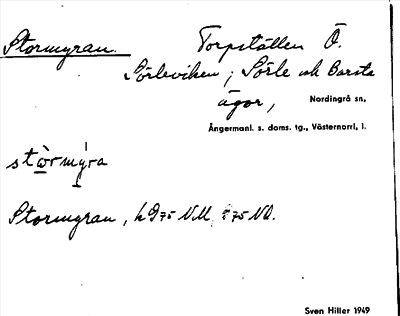 Stormyran. Torpställen Ö.
Sörleviken; Sörle och Barsta
ägor,
Nordingrå sn,
Ångermanl. s. doms. tg., Västernorrl, l.
stòrmýra
Stormyran, h 975 NV. 
Sven Hiller 1949